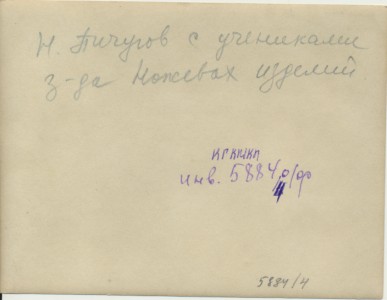 Н. Пичугов с учениками
з-да Ножевах изделий
инв. 5884
5884/4